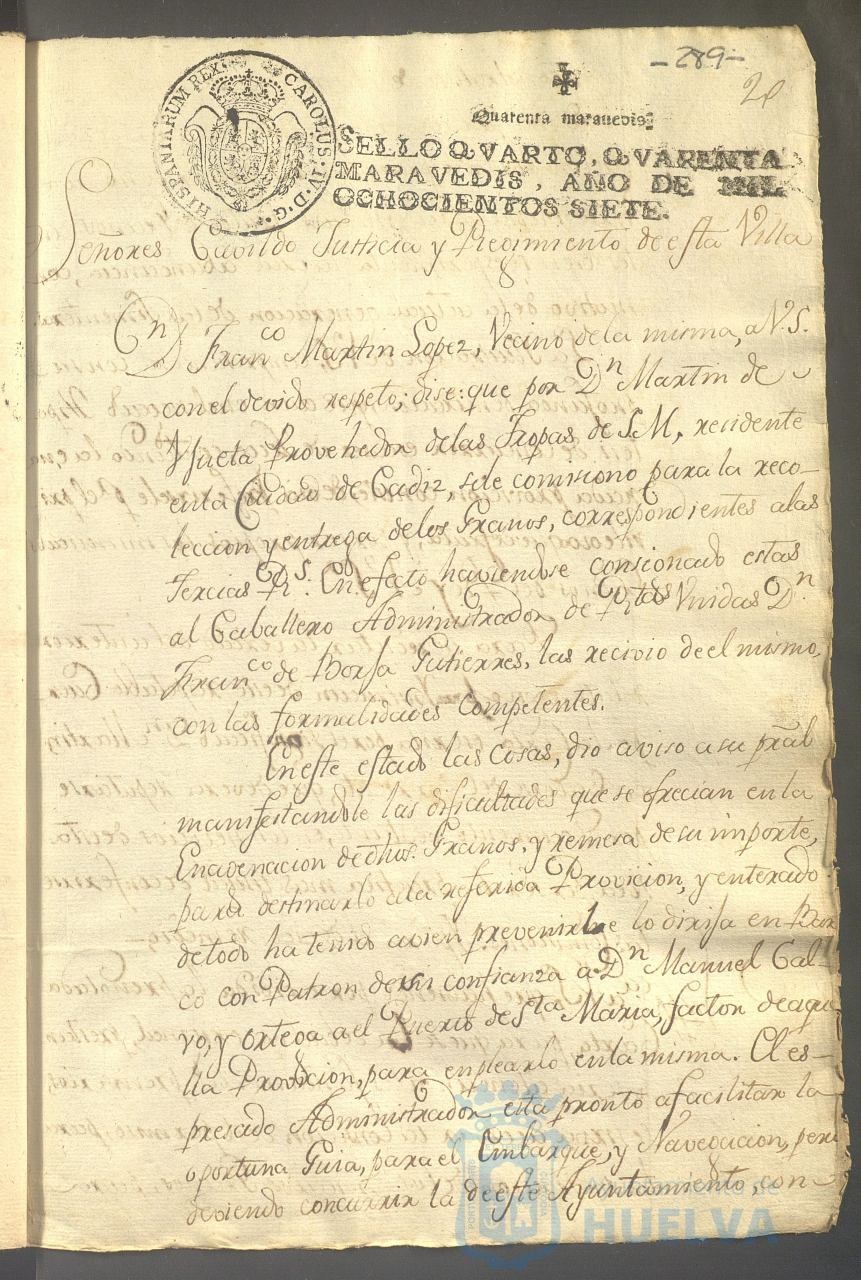 -289-
20
Quarenta maravedis.
SELLO QVARTO, QVARENTA
MARAVEDIS, AÑO DE MIL
OCHOCIENTOS SIETE.
CAROLUS·IV·D·G· HISPANIARUM REX
Señores Cavildo Justicia y Regimiento de esta Villa
Dn Franco Martin Lopez, Vecino de la misma, a V.S.
con el devido respeto, dise: que por Dn Martin de
Provehedor de las Tropas de S.M, recidente
en la Ciudad de Cadiz, se le comisiono para la reco-
leccion y entrega de los Granos, correspondientes a las
Tercias Rs. En efecto haviendose consionado estas
al Caballero Administrador de Rtas Vnidas Dn
Franco de Borja Gutierres, las recivio de el mismo,
con las formalidades Competentes.
En este estado las Cosas, dio aviso a su pral
manifestandole las dificultades que se ofrecian en la
Enagenacion de dhos. Granos, y remesa de su importe,
para destinarlo a la referida Provicion, y enterado
de todo ha tenido avien prevenirle lo dirija en Bar
co con Patron de su confianza a Dn Manuel Cal-
vo, y Ortega a el Puerto de Sta Maria, factor de aque
lla Provicion, para emplearlo en la misma. El es-
presado Administrador esta pronto a facilitar la
oportuna Guia, para el Embarque, y Navegacion, pero
deviendo concurrir la de este Ayuntamiento, con
Ayuntamiento de
HUELVA